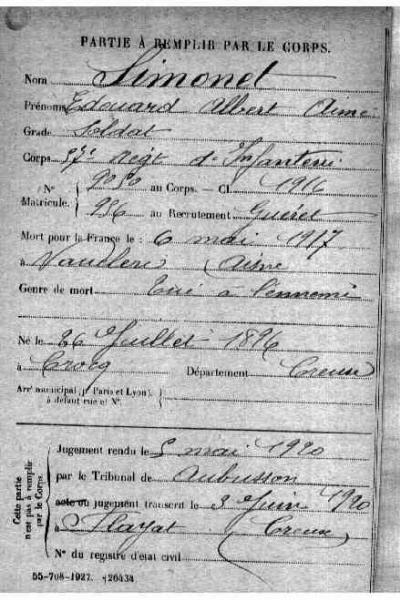 PARTIE À REMPLIR PAR LE CORPS.
Nom Simonet
Prénoms Edouard Albert Aimé
Grade Soldat
Corps 37e Régt d'Infanterie
N° 9050 au Corps. — Cl. 1916
Matricule. 956 au Recrutement Guéret
Mort pour la France le : 6 mai 1917
à Vauclerc Aisne
Genre de mort Tué à l'ennemi
Né le 26 Juillet 1896
à Crocq Département Creuse
Arrt municipal (pr Paris et Lyon),
à défaut rue et N°.
Cette partie
n'est pas à remplir
par le Corps.
Jugement rendu le 5 mai 1920
par le Tribunal de Aubusson
acte ou jugement transcrit le 3 Juin 1920
à Flayat Creuse
N° du registre d'état civil
55-708-1927. 26434